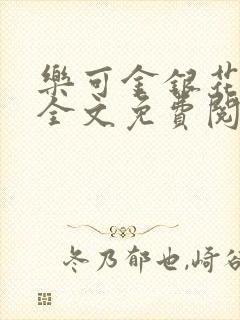 樂可金銀花
全文免費閱
冬乃郁也,崎谷